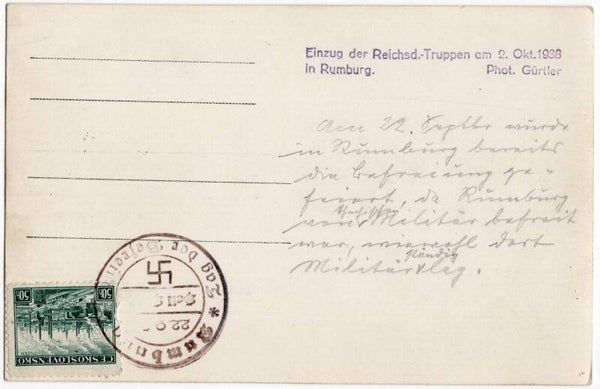 Einzug der Reichsd.-Truppen am 2. Okt.1938
in Rumburg. Phot. Gürtler
Am 22. Septbr wurde
in Rumburg bereits
die Befreiung ge-
feiert, da Rumburg
von tschechischem Militär befreit
war, wiewohl dort
ständig
Militär lag.
* Rumburg * Tag der Befreiung
22.9.
50 50
ČESKOSLOVENSKO